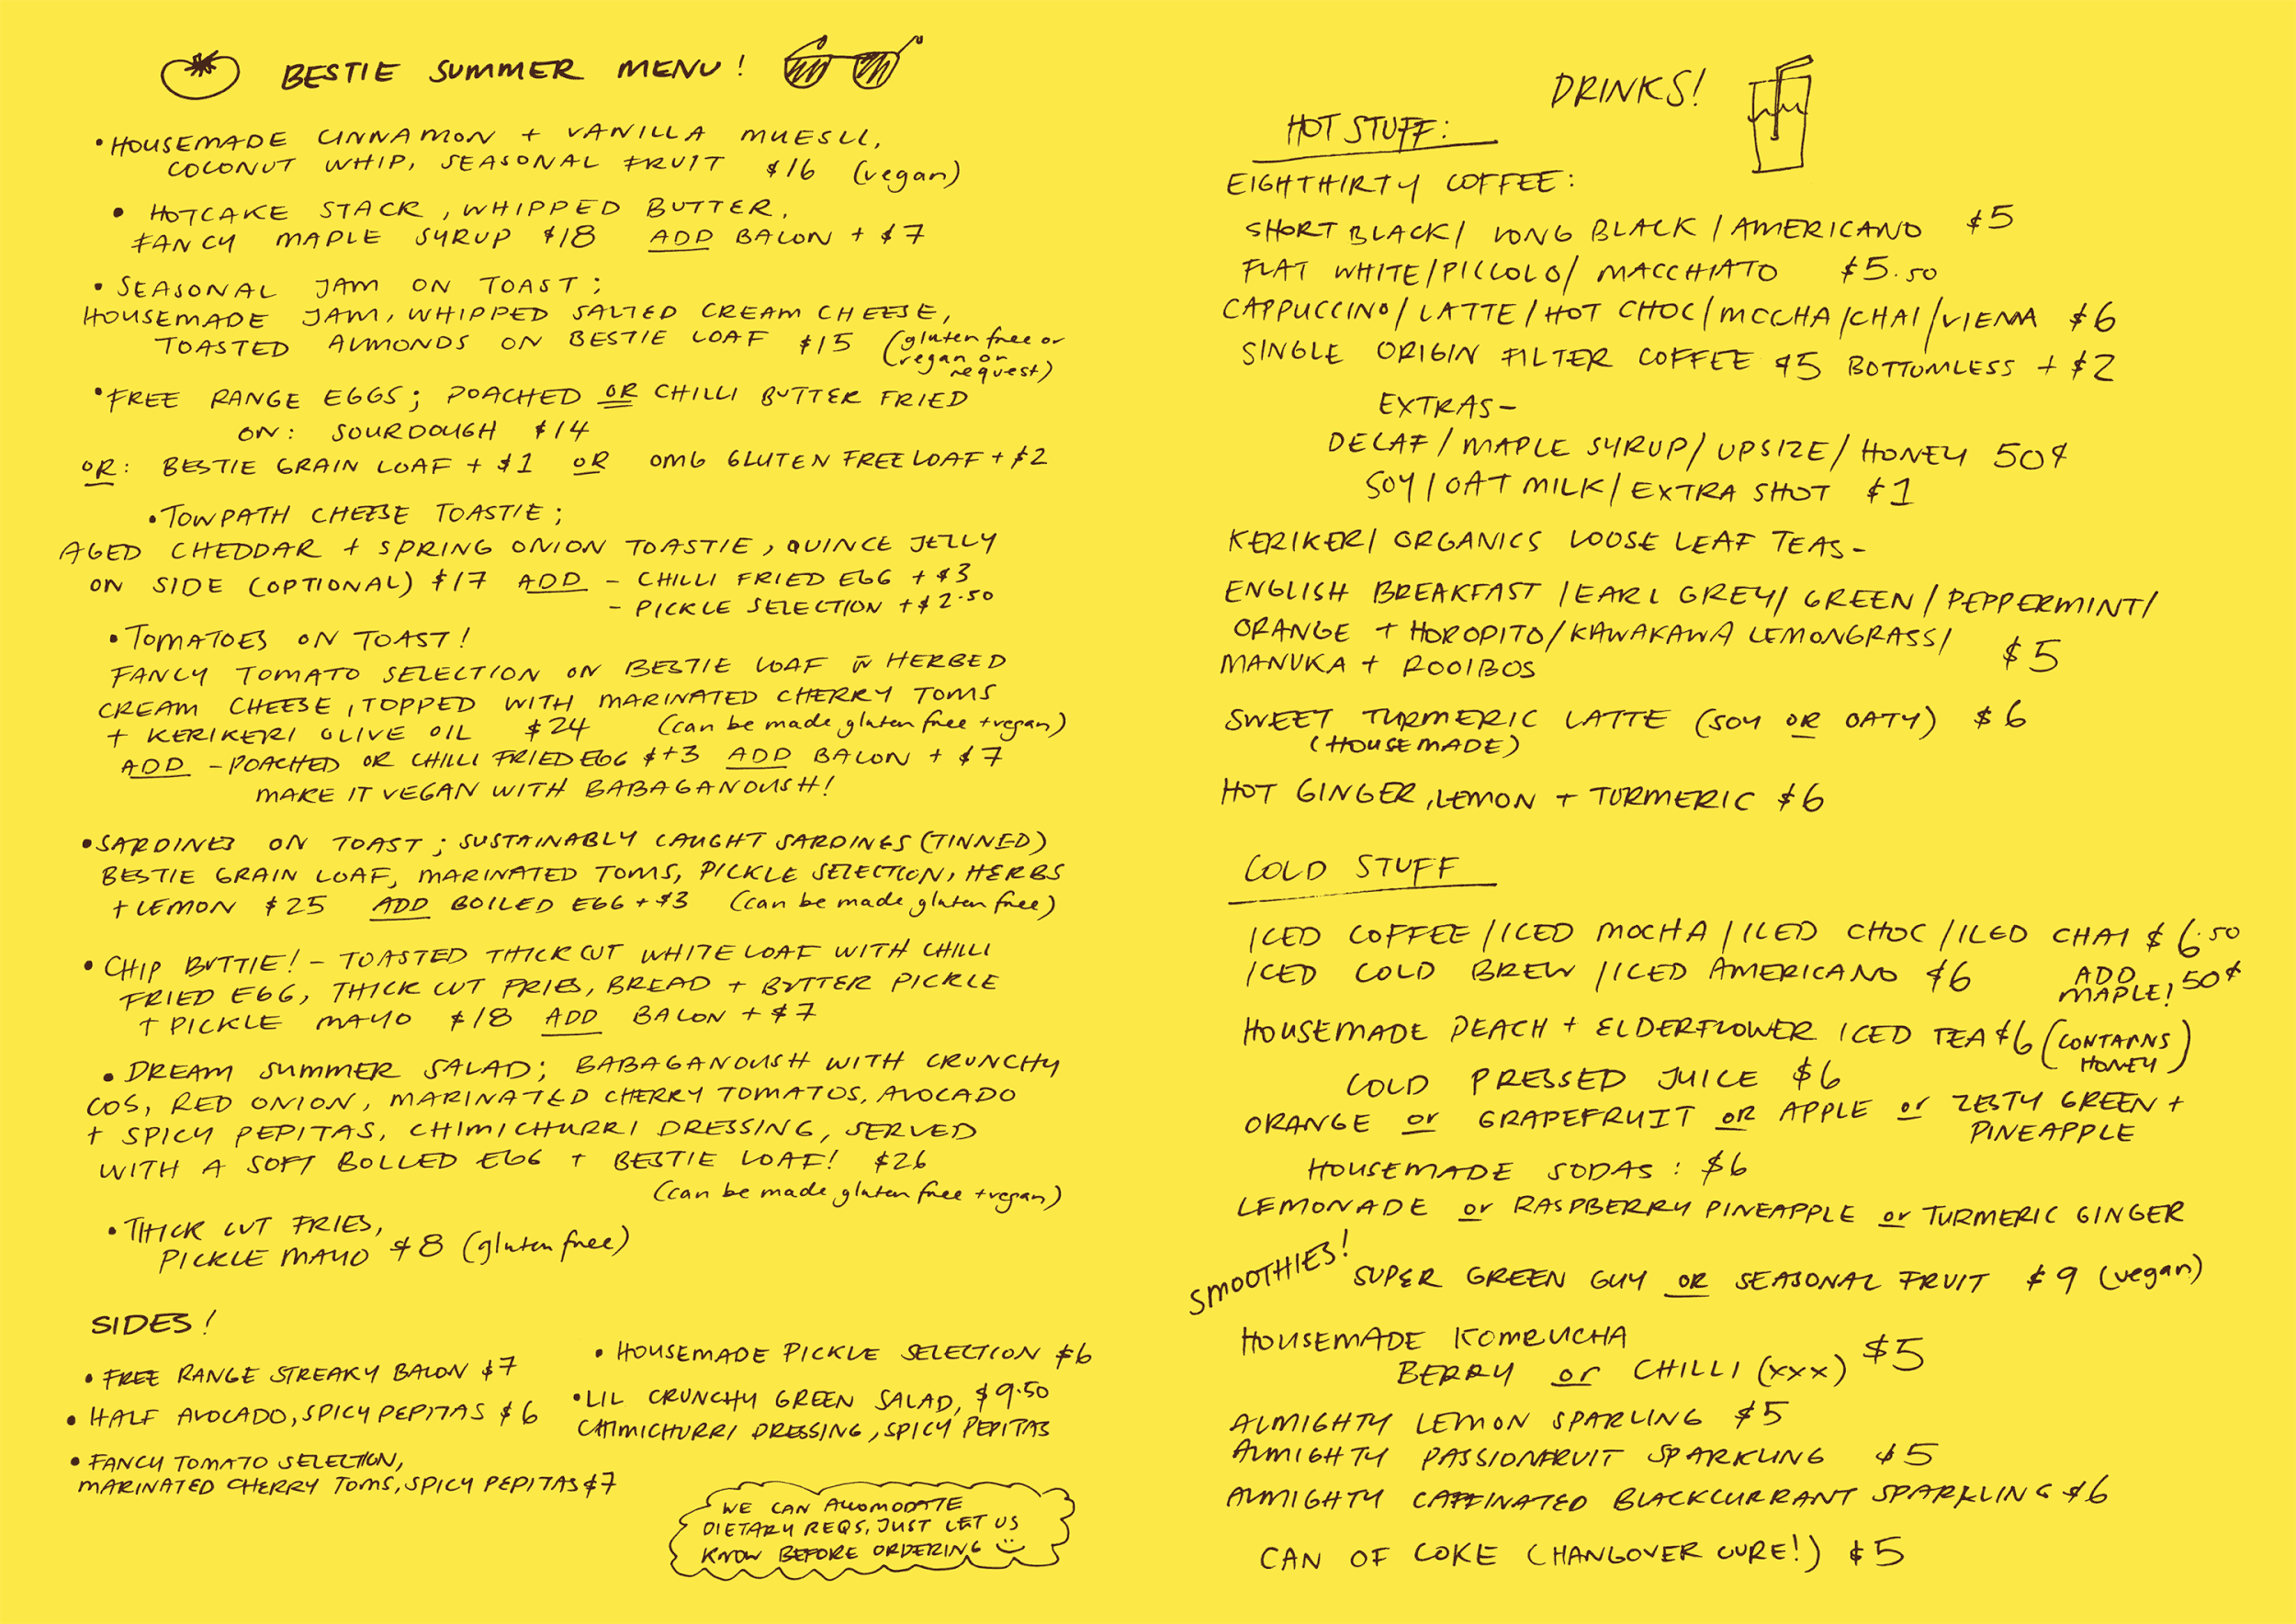 BESTIE SUMMER MENU!
• HOUSEMADE CINNAMON + VANILLA MUESLI,
COCONUT WHIP, SEASONAL FRUIT $16 (vegan)
• HOTCAKE STACK, WHIPPED BUTTER,
FANCY MAPLE SYRUP $18 ADD BACON + $7
• SEASONAL JAM ON TOAST;
HOUSEMADE JAM, WHIPPED SALTED CREAM CHEESE,
TOASTED ALMONDS ON BESTIE LOAF $15 (gluten free or
vegan on
request)
• FREE RANGE EGGS; POACHED OR CHILLI BUTTER FRIED
ON: SOURDOUGH $14
OR: BESTIE GRAIN LOAF + $1 OR OMG GLUTEN FREE LOAF + $2
• TOWPATH CHEESE TOASTIE;
AGED CHEDDAR + SPRING ONION TOASTIE, QUINCE JELLY
ON SIDE (OPTIONAL) $17 ADD - CHILLI FRIED EGG + $3
- PICKLE SELECTION + $2.50
• TOMATOES ON TOAST!
FANCY TOMATO SELECTION ON BESTIE LOAF w HERBED
CREAM CHEESE, TOPPED WITH MARINATED CHERRY TOMS
+ KERIKERI OLIVE OIL $24 (can be made gluten free + vegan)
ADD - POACHED OR CHILLI FRIED EGG $+3 ADD BACON + $7
MAKE IT VEGAN WITH BABAGANOUSH!
• SARDINES ON TOAST; SUSTAINABLY CAUGHT SARDINES (TINNED)
BESTIE GRAIN LOAF, MARINATED TOMS, PICKLE SELECTION, HERBS
+ LEMON $25 ADD BOILED EGG + $3 (can be made gluten free)
• CHIP BUTTIE! - TOASTED THICK CUT WHITE LOAF WITH CHILLI
FRIED EGG, THICK CUT FRIES, BREAD + BUTTER PICKLE
+ PICKLE MAYO $18 ADD BACON + $7
• DREAM SUMMER SALAD; BABAGANOUSH WITH CRUNCHY
COS, RED ONION, MARINATED CHERRY TOMATOS, AVOCADO
+ SPICY PEPITAS, CHIMICHURRI DRESSING, SERVED
WITH A SOFT BOILED EGG + BESTIE LOAF! $26
(can be made gluten free + vegan)
• THICK CUT FRIES,
PICKLE MAYO $8 (gluten free)
SIDES!
• FREE RANGE STREAKY BACON $7
• HALF AVOCADO, SPICY PEPITAS $6
• FANCY TOMATO SELECTION,
MARINATED CHERRY TOMS, SPICY PEPITAS $7
• HOUSEMADE PICKLE SELECTION $6
• LIL CRUNCHY GREEN SALAD, $9.50
CHIMICHURRI DRESSING, SPICY PEPITAS
WE CAN ACCOMODATE
DIETARY REQS, JUST LET US
KNOW BEFORE ORDERING
DRINKS!
HOT STUFF:
EIGHTHIRTY COFFEE:
SHORT BLACK / LONG BLACK / AMERICANO $5
FLAT WHITE / PICCOLO / MACCHIATO $5.50
CAPPUCCINO / LATTE / HOT CHOC / MOCHA / CHAI / VIENNA $6
SINGLE ORIGIN FILTER COFFEE $5 BOTTOMLESS + $2
EXTRAS -
DECAF / MAPLE SYRUP / UPSIZE / HONEY 50¢
SOY / OAT MILK / EXTRA SHOT $1
KERIKERI ORGANICS LOOSE LEAF TEAS -
ENGLISH BREAKFAST / EARL GREY / GREEN / PEPPERMINT /
ORANGE + HOROPITO / KAWAKAWA LEMONGRASS /
MANUKA + ROOIBOS $5
SWEET TURMERIC LATTE (SOY OR OATY) $6
(HOUSEMADE)
HOT GINGER, LEMON + TURMERIC $6
COLD STUFF
ICED COFFEE / ICED MOCHA / ICED CHOC / ICED CHAI $6.50
ICED COLD BREW / ICED AMERICANO $6 ADD
MAPLE! 50¢
HOUSEMADE PEACH + ELDERFLOWER ICED TEA $6 (CONTAINS
HONEY)
COLD PRESSED JUICE $6
ORANGE or GRAPEFRUIT OR APPLE or ZESTY GREEN +
PINEAPPLE
HOUSEMADE SODAS: $6
LEMONADE or RASPBERRY PINEAPPLE or TURMERIC GINGER
SMOOTHIES!
SUPER GREEN GUY OR SEASONAL FRUIT $9 (vegan)
HOUSEMADE KOMBUCHA
BERRY or CHILLI (xxx) $5
ALMIGHTY LEMON SPARLING $5
ALMIGHTY PASSIONFRUIT SPARKLING $5
ALMIGHTY CAFFINATED BLACKCURRANT SPARKLING $6
CAN OF COKE (HANGOVER CURE!) $5